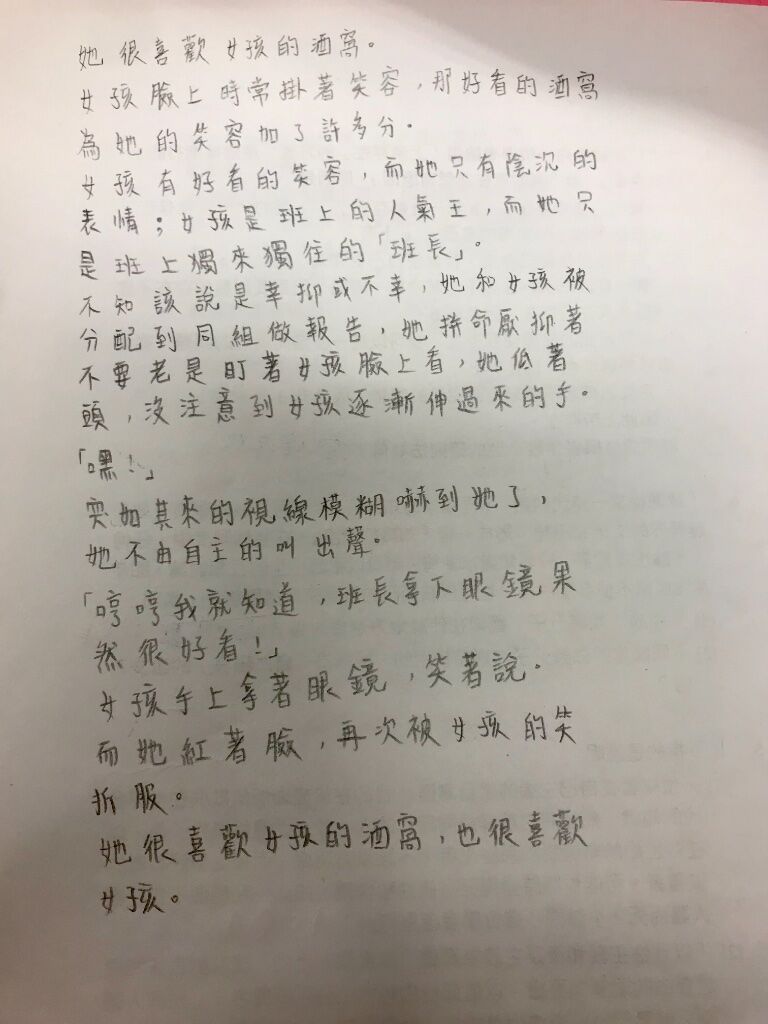 她很喜歡女孩的酒窩。
女孩臉上時常掛著笑容，那好看的酒窩
為她的笑容加了許多分。
女孩有好看的笑容，而她只有陰沉的
表情；女孩是班上的人氣王，而她只
是班上獨來獨往的「班長」。
不知該說是幸抑或不幸，她和女孩被
分配到同組做報告，她拼命壓抑著
不要老是盯著女孩臉上看，她低著
頭，沒注意到女孩逐漸伸過來的手。
「嘿！」
突如其來的視線模糊嚇到她了，
她不由自主的叫出聲。
「哼哼我就知道，班長拿下眼鏡果
然很好看！」
女孩手上拿著眼鏡，笑著說。
而她紅著臉，再次被女孩的笑
折服。
她很喜歡女孩的酒窩，也很喜歡
女孩。